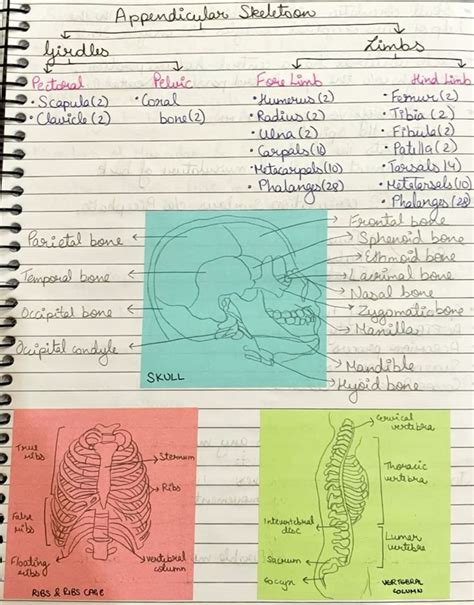 Appendicular Skeletoon
Girdles Limbs
Pectoral Pelvic Fore Limb Hind Limb
• Scapula (2) • Coxal • Humerus (2) • Femur (2)
• Clavicle (2) bone (2) • Radius (2) • Tibia (2)
• Ulna (2) • Fibula (2)
• Carpals (16) • Patilla (2)
• Metacarpals (10) • Tarsals 14)
• Phalanges (28) • Metatersals (10)
• Phalanges (28)
Frontal bone
Parietal bone Sphenoid bone
Ethmoid bone
Temporal bone Lacrimal bone
Nasal bone
Occipital bone Zygomatic bone
Manilla
Occipital condyle
Mandible
SKULL Hyoid bone
True ribs
Sternum
Ribs
False ribs
Floating ribs
vertebral column
RIBS & RIBS CAGE
Cervical vertebra
Thoracic vertebra
Intervertebral disc
Lumer vertebrae
Sacrum
Cocyn
VERTEBRAL COLUMN